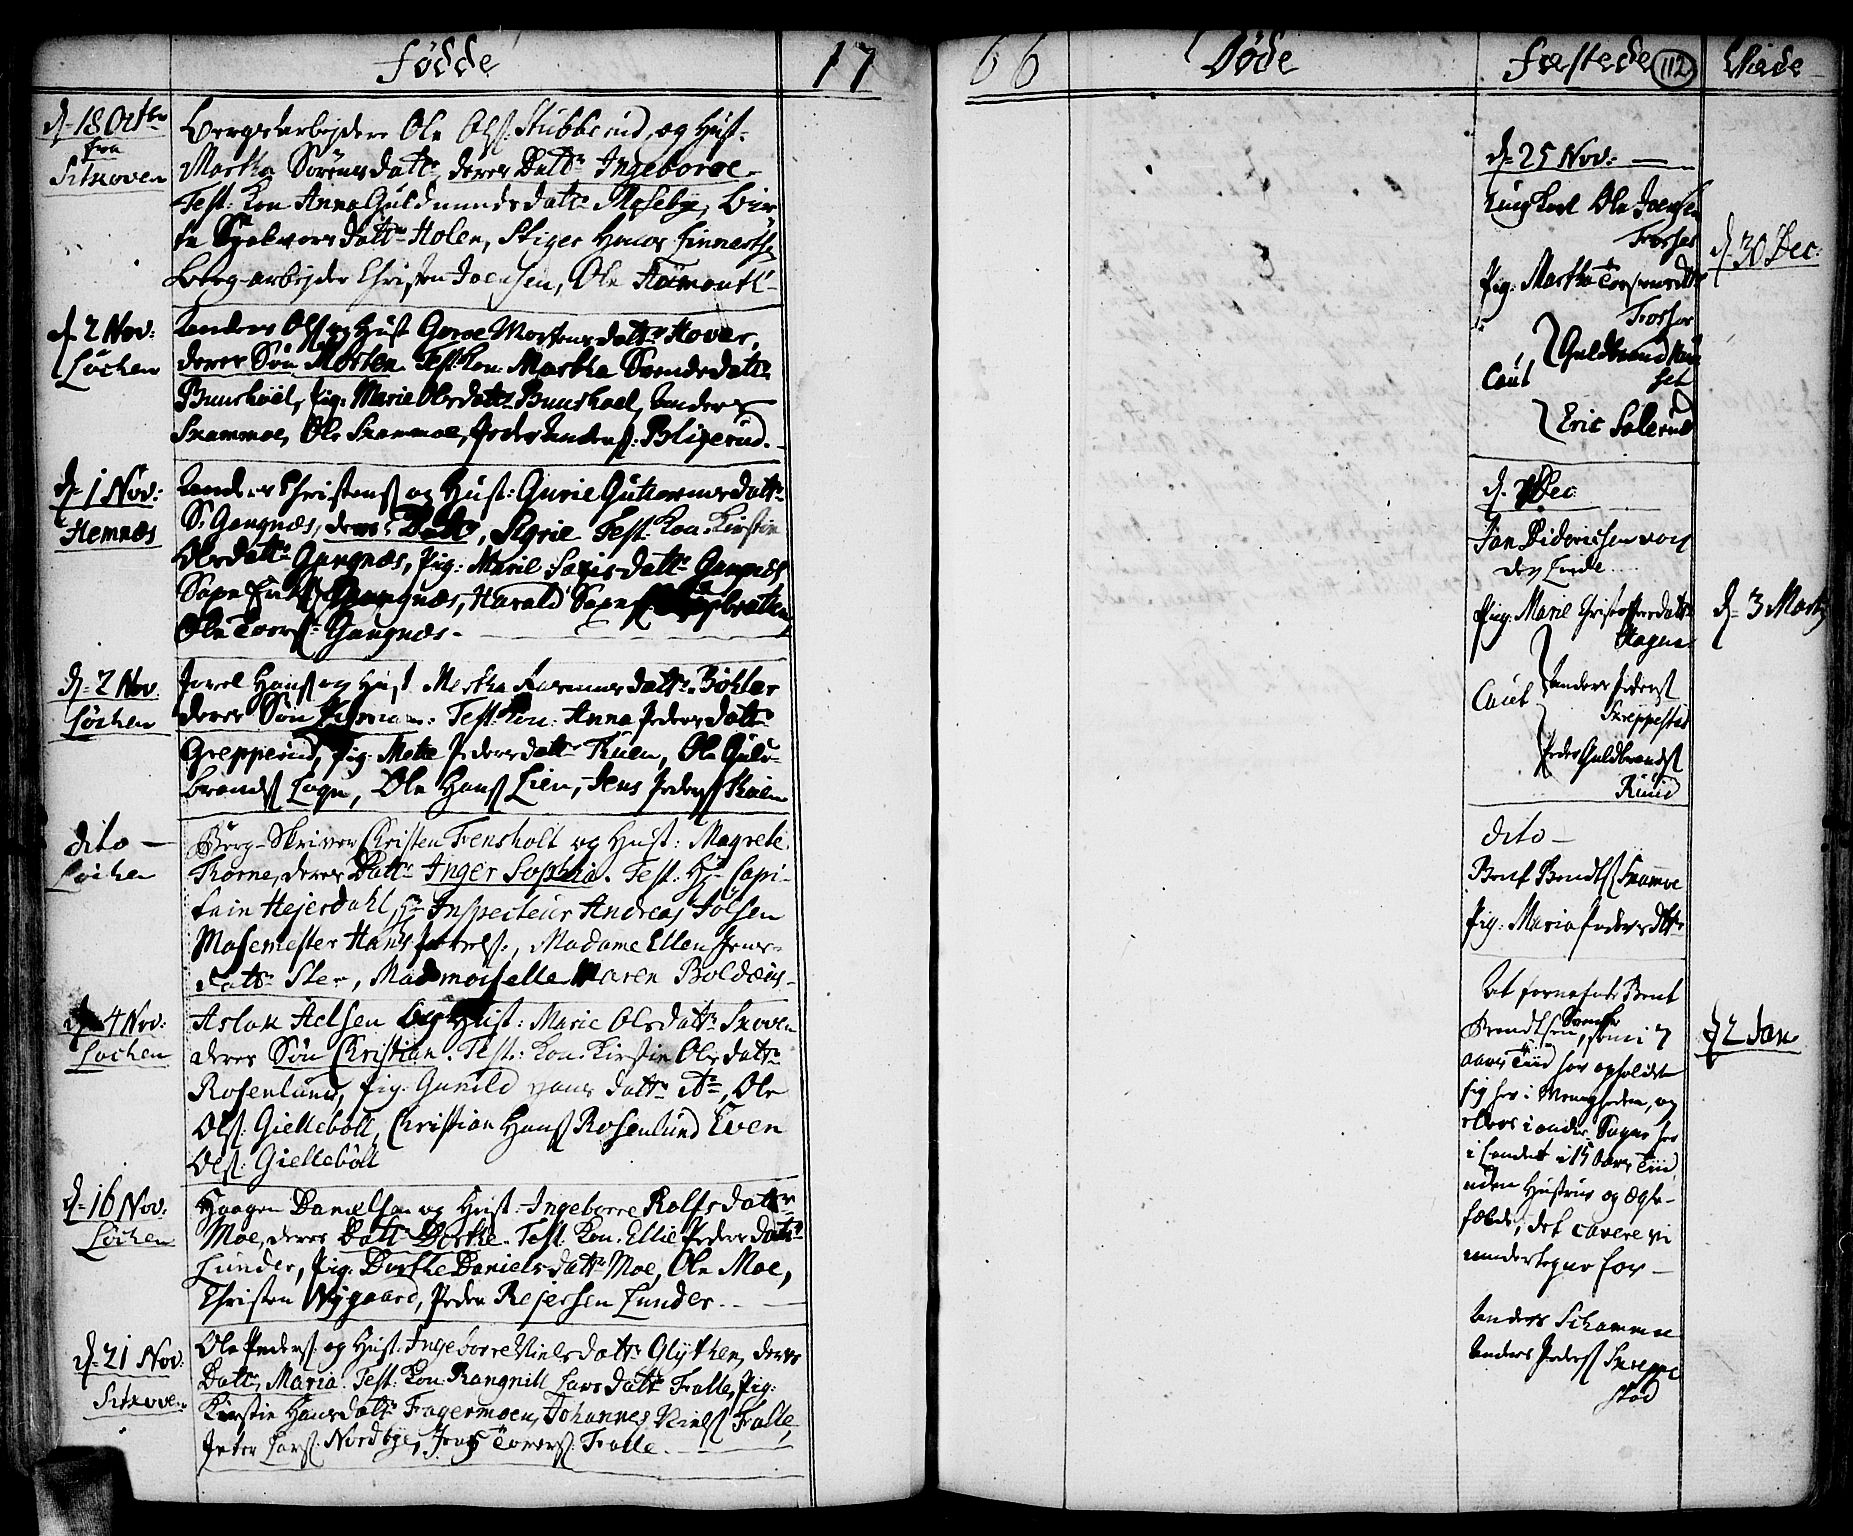 Fødde
17
66
Døde
Fæstede
112
Viede
d. 18 Octbr
fra
Sitskoven
Bergs-arbejdere Ole Ols: Stubberud, og Hust.
Martha Sørensdattr deres Dattr Ingeborre
Test: Kon Anna Guldmundsdattr Moseby, Bir-
te Siovorsdattr Holen, Stiger
Berg-arbejder Christen Joensen, Ole
d. 2 Nov:
Løchen
Anders Ols og Hust Goroe Mortensdattr Hover,
deres Søn Morten Test: Kon: Martha Svendsdattr
Buushoel, Pig: Marie Olsdattr Buushoel, Anders
Skammoe, Ole Skammoe, Peder Anders: Bligerud.
d. 1 Nov:
Hemnæs
Anders Christens og Hust: Gurie Guttormsdattr
S: Gangnæs, deres Dattr, Sigrie Test: Kon: Kirstie
Olsdattr Gangnæs, Pig: Marie dattr Gangnæs
Gangnæs, Harald
Ole Tovers: Gangnæs-
d. 2 Nov.
Løchen
Powel Hans og Hust Martha Rasmusdattr Böhler
deres Søn Test: Kon: Anna Pedersdattr
Grepperud, Pig: Mette Pedersdattr Thuen, Ole Guld-
brands Løgn, Ole Hans Lien, Jens Peders Thuen
dito -
Løchen
Berg-Skriver Christen Fensholt og Hust: Magrete
Thorne, deres Dattr Inger Sophia. Test: Hr Capi-
tain Hejerdahl, Hr Inspecteur Andreas Jolsen
Masemester Hans Powels:, Madame Ellen Jens-
Dattr Ster, Madmoiselle Maren Boldæus-
d. 4 Nov:
Løchen
Aslak Acksen og Hust: Marie Olsdattr Skoven
deres Søn Christian. Test: Kon: Kirstie Olsdattr
Rosenlund, Pig: Gunild Hansdattr itm, Ole
Ols: Giellebøll, Christian Hans Rosenlund Even
Ols: Giellebøll
d. 16 Nov:
Løchen
Haagen Danielsøn og Hust - Ingeborre Rolfsdattr
Moe, deres Dattr Dorthe. Test: Kon: Ellie Pedersdattr
Lunder, Pig: Dorthe Danielsdattr Moe, Ole Moe,
Christen Nygaard, Peder Rejersen Lunder.
d. 21 Nov:
Sitskoven
Ole Peders: og Hust: Ingeborre Nielsdattr Glythen, deres
Dattr, Maria. Test: Kon: Rangnill Larsdattr Falle, Pig:
Kirstie Hansdattr Fagermoen, Johannes Niels Falle,
Peter Lars: Nordbye, Jens Tovers: Falle.
d. 25 Nov:
Ungkarl Ole Joensen
Fosser
Pig: Martha Torsensdattr
Fosser
Caut
Guldbrand
set
Eric Solerud
d. 30 Dec:
d. Dec:
Jan Diderichsen von
der Linde
Pig: Marie Christophersdattr
Hagen
Caut
Anders Peders
Skreppestad
Peder Guldbrands
Ruud
d. 3 Martj
dito -
Bent Bendts Skamoe
Pig: Maria Pedersdttr
At fornefnte Bent
Bendtsen Svenske, som i 7
aars Tiid har opholdet
sig her i Menigheden, og
ellers i andre Sogne her
i Landet i 15 aars Tiid
uden Hustrue og ægte-
fælde, det cavere vi
undertegne for -
Anders Schammoe
Anders Peders Skreppe
stad
d. 2 Jan